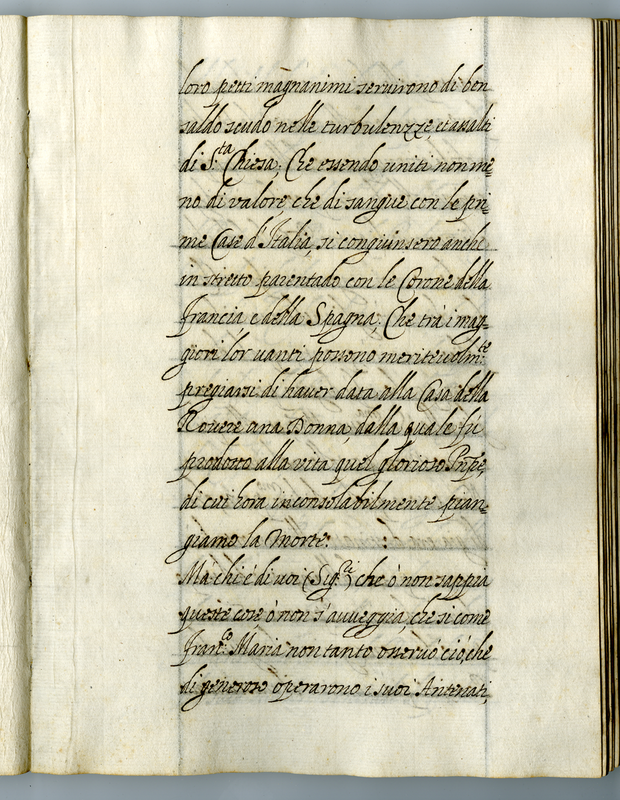 loro petti magnanimi servirono di ben
saldo scudo nelle turbulenzze, et assalti
di S.ta Chiesa; Che essendo uniti non me=
no di valore, che di sangue con le pri=
me Case d'Italia, si congiunsero anche
in stretto parentado con le Corone della
Francia e della Spagna; Che trà i mag=
giori lor vanti possono meritevolm.te
pregiarsi di haver data alla Casa della
Rovere una Donna, dalla quale fù
prodotto alla vita quel glorioso Prñpe,
di cui hora inconsolabilmente pian=
giamo la Morte.
Ma chi é di voi (Sig.ri) che ò non sappia
queste cose, ò non s'avveggia, che si come
Fran.co Maria non tanto osservò ciò, che
di generoso operarono i suoi Antenati,